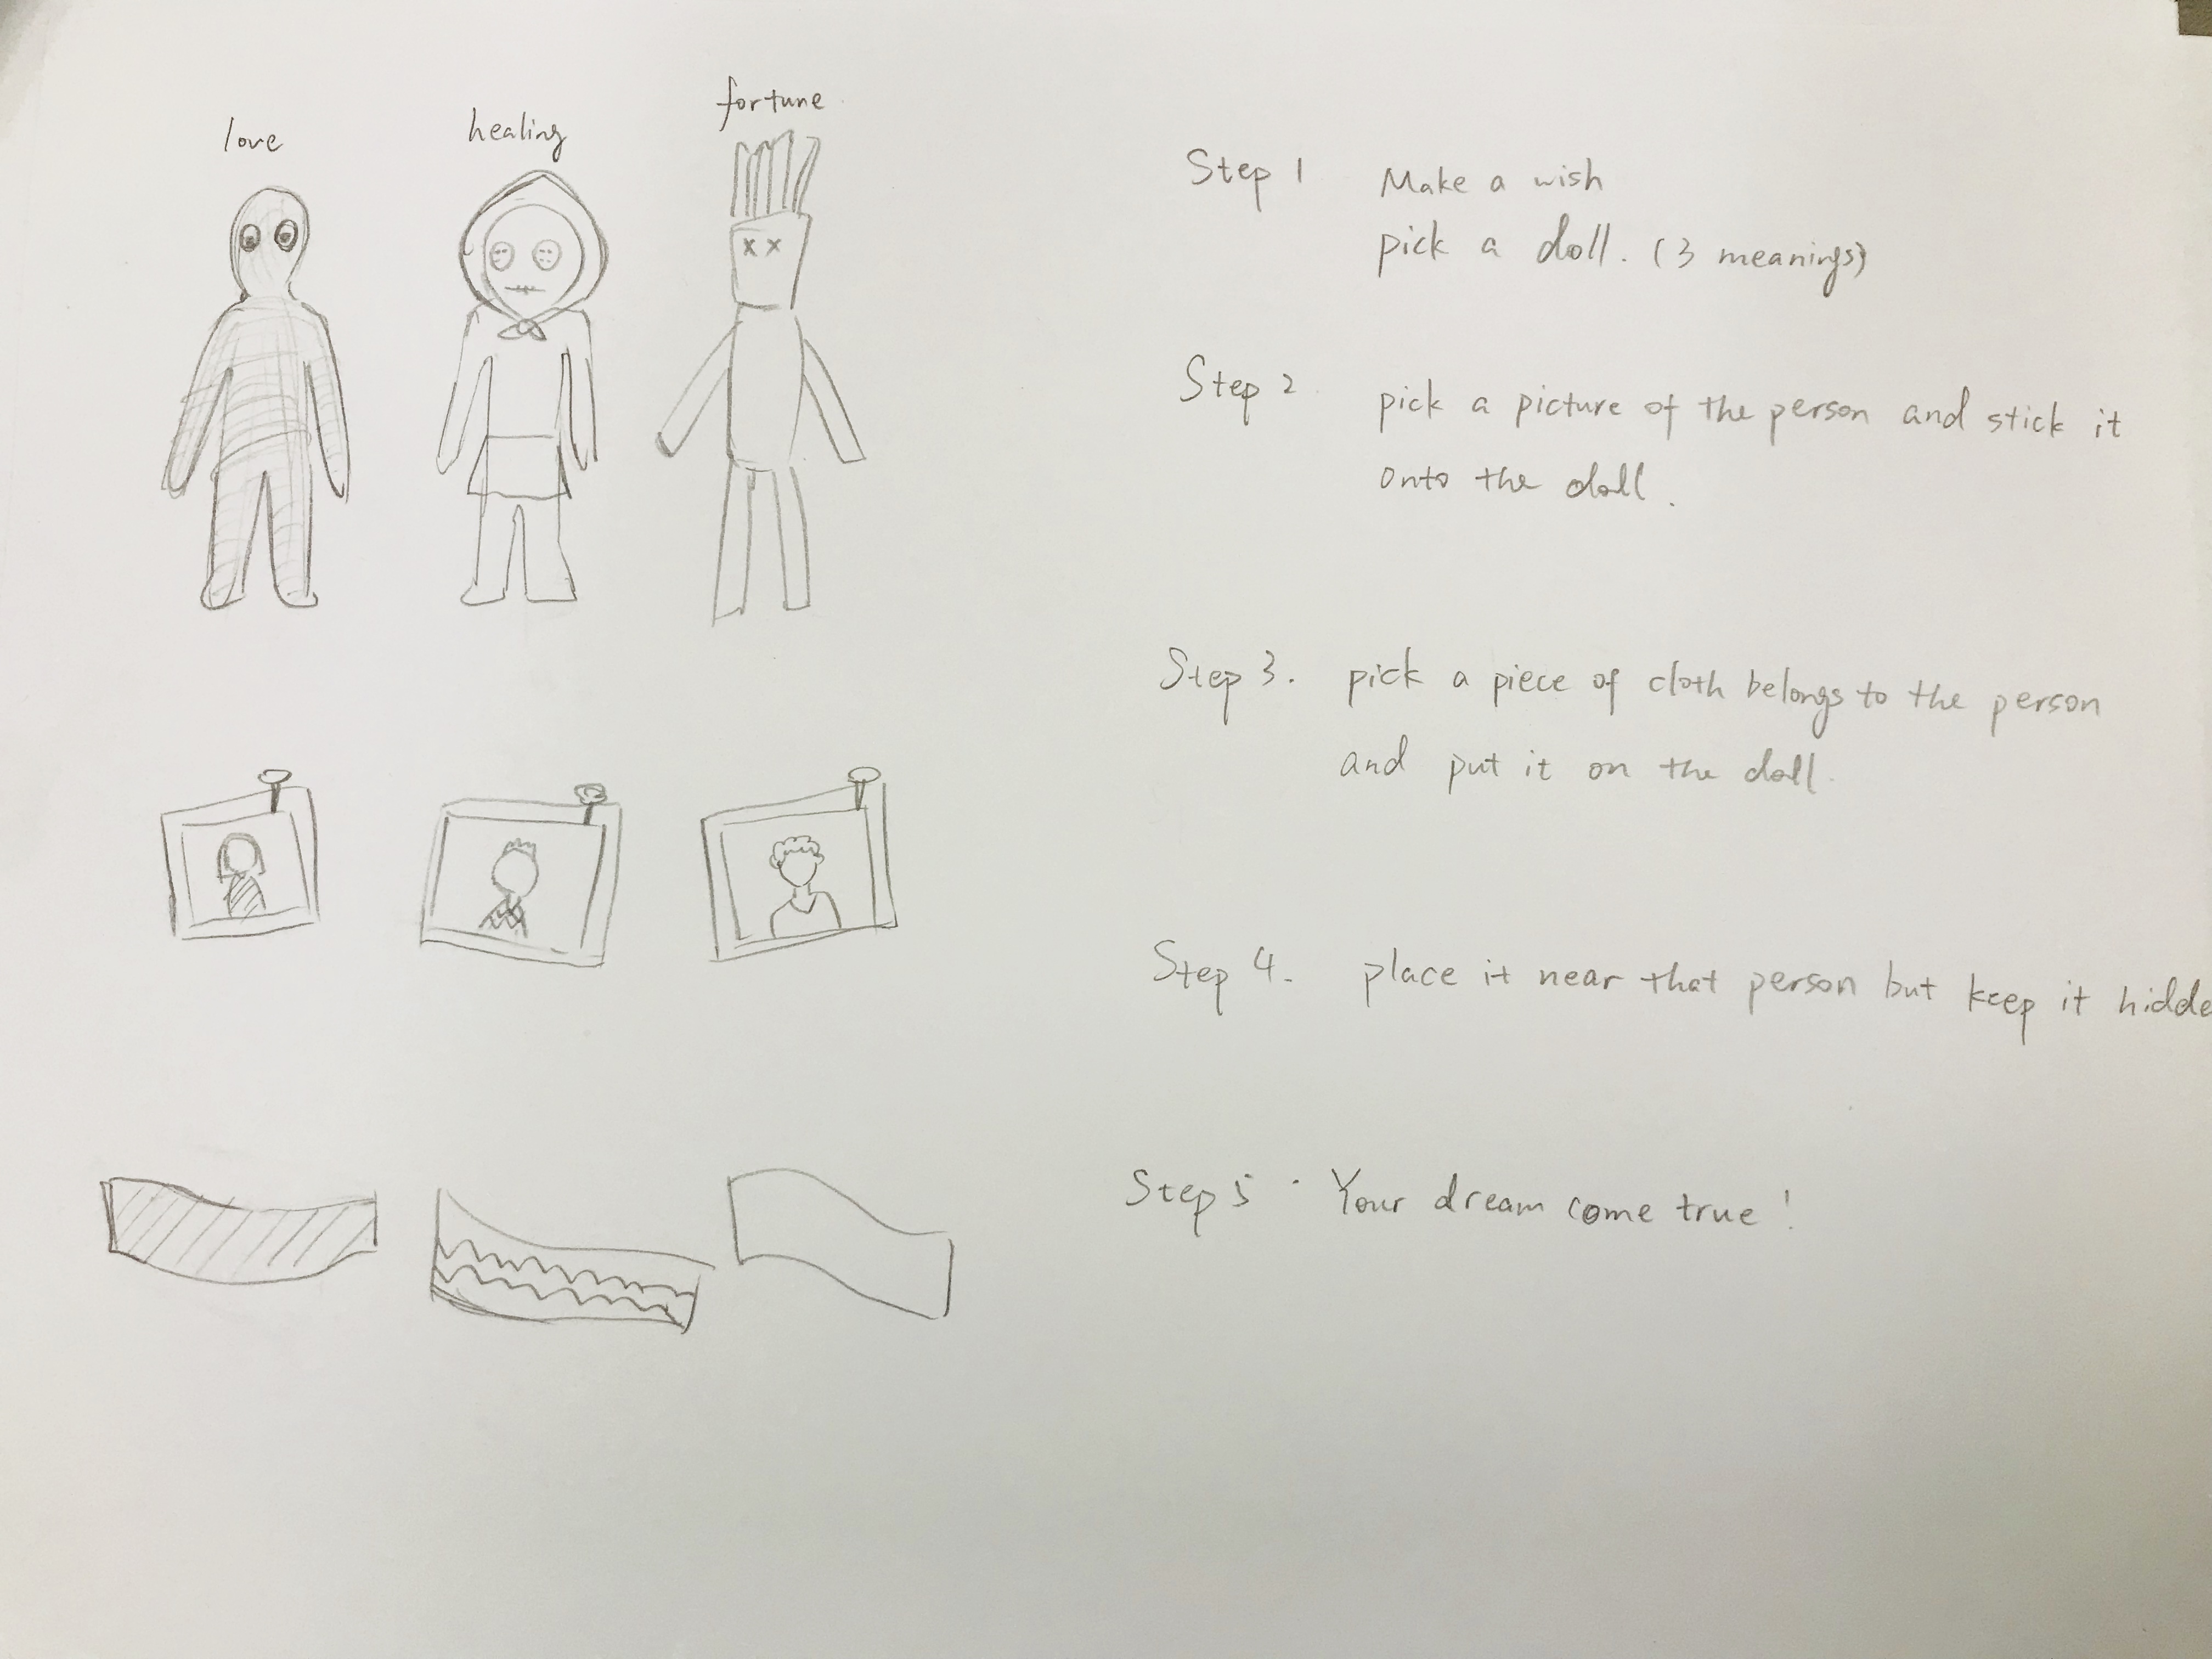 love
healing
fortune
Step 1 Make a wish
pick a doll. (3 meanings)
Step 2 pick a picture of the person and stick it
onto the doll.
Step 3. pick a piece of cloth belongs to the person
and put it on the doll.
Step 4. place it near that person but keep it hidde
Step 5. Your dream come true!